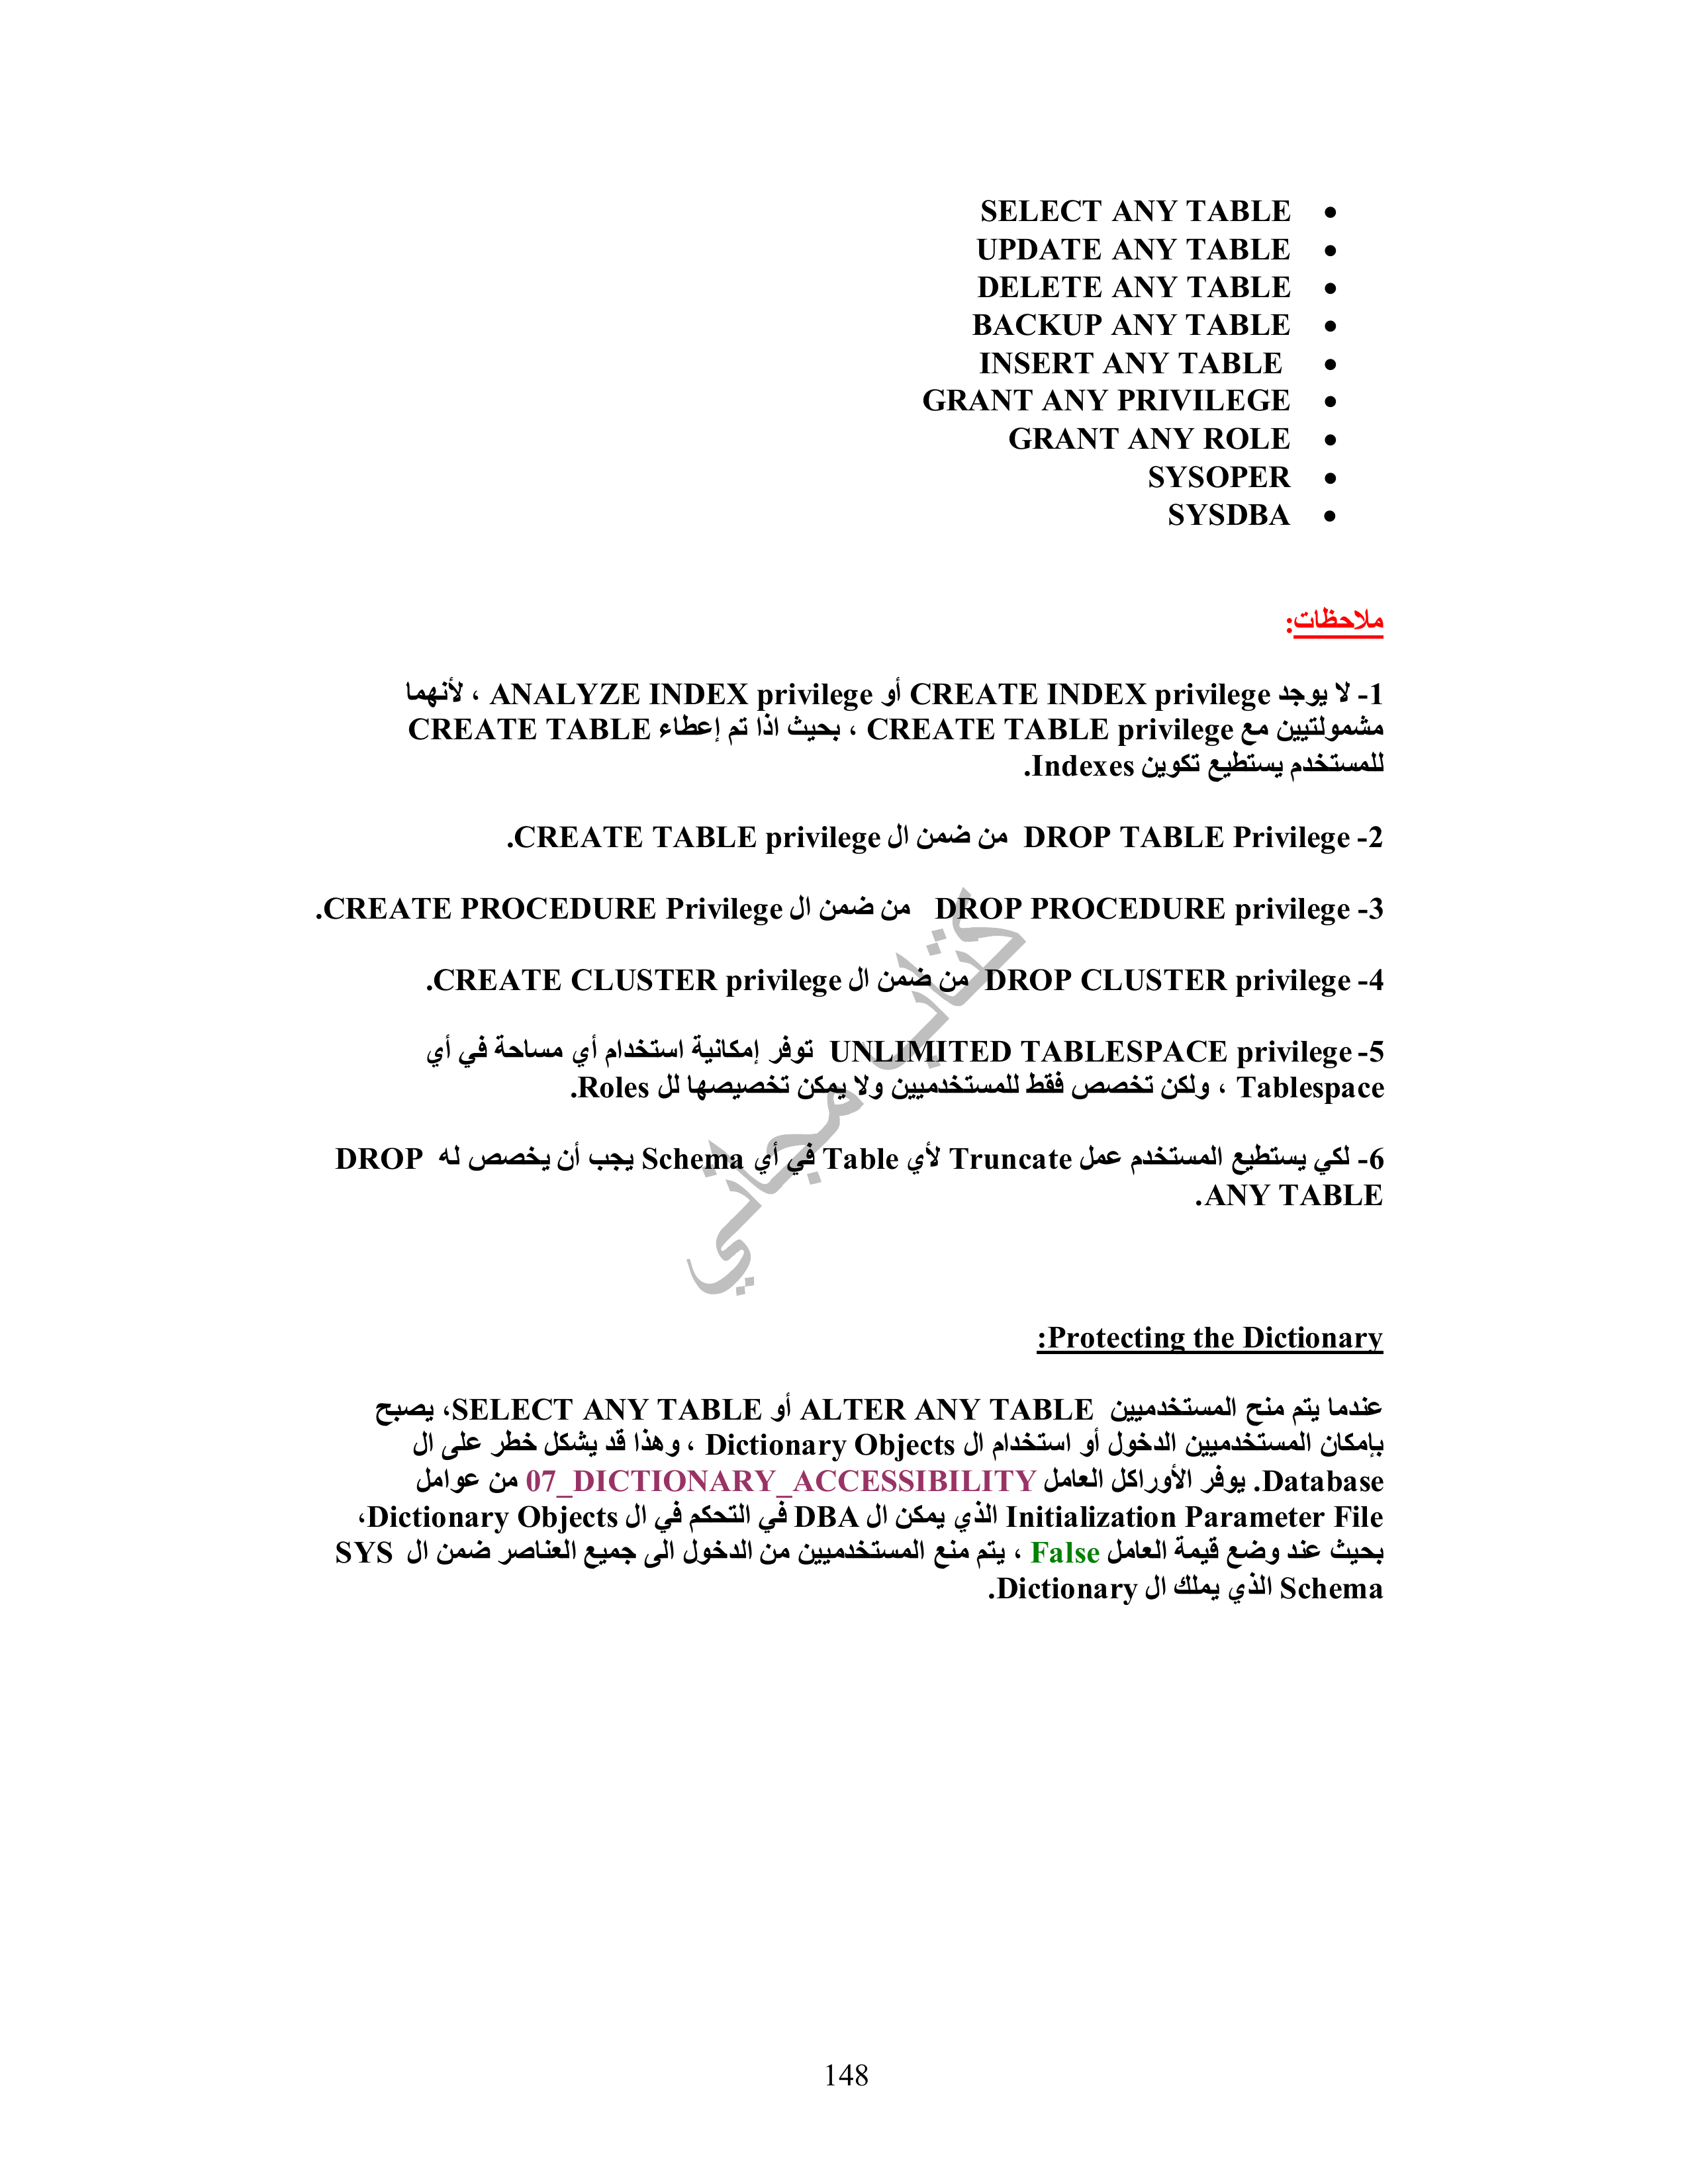 SELECT ANY TABLE
UPDATE ANY TABLE
DELETE ANY TABLE
BACKUP ANY TABLE
INSERT ANY TABLE
GRANT ANY PRIVILEGE
GRANT ANY ROLE
SYSOPER
SYSDBA
ملاحظات:
1- لا يوجد CREATE INDEX privilege أو ANALYZE INDEX privilege ، لأنهما
مشمولتيين مع CREATE TABLE privilege ، بحيث اذا تم إعطاء CREATE TABLE
للمستخدم يستطيع تكوين Indexes.
2- DROP TABLE Privilege من ضمن ال CREATE TABLE privilege.
3- DROP PROCEDURE privilege من ضمن ال CREATE PROCEDURE Privilege.
4- DROP CLUSTER privilege من ضمن ال CREATE CLUSTER privilege.
5- UNLIMITED TABLESPACE privilege توفر إمكانية استخدام أي مساحة في أي
Tablespace ، ولكن تخصص فقط للمستخدميين ولا يمكن تخصيصها لل Roles.
6- لكي يستطيع المستخدم عمل Truncate لأي Table في أي Schema يجب أن يخصص له DROP
ANY TABLE.
كتاب مجاني
Protecting the Dictionary:
عندما يتم منح المستخدميين ALTER ANY TABLE أو SELECT ANY TABLE، يصبح
بإمكان المستخدميين الدخول أو استخدام ال Dictionary Objects ، وهذا قد يشكل خطر على ال
Database. يوفر الأوراكل العامل 07_DICTIONARY_ACCESSIBILITY من عوامل
Initialization Parameter File الذي يمكن ال DBA في التحكم في ال Dictionary Objects،
بحيث عند وضع قيمة العامل False ، يتم منع المستخدميين من الدخول الى جميع العناصر ضمن ال SYS
Schema الذي يملك ال Dictionary.
148